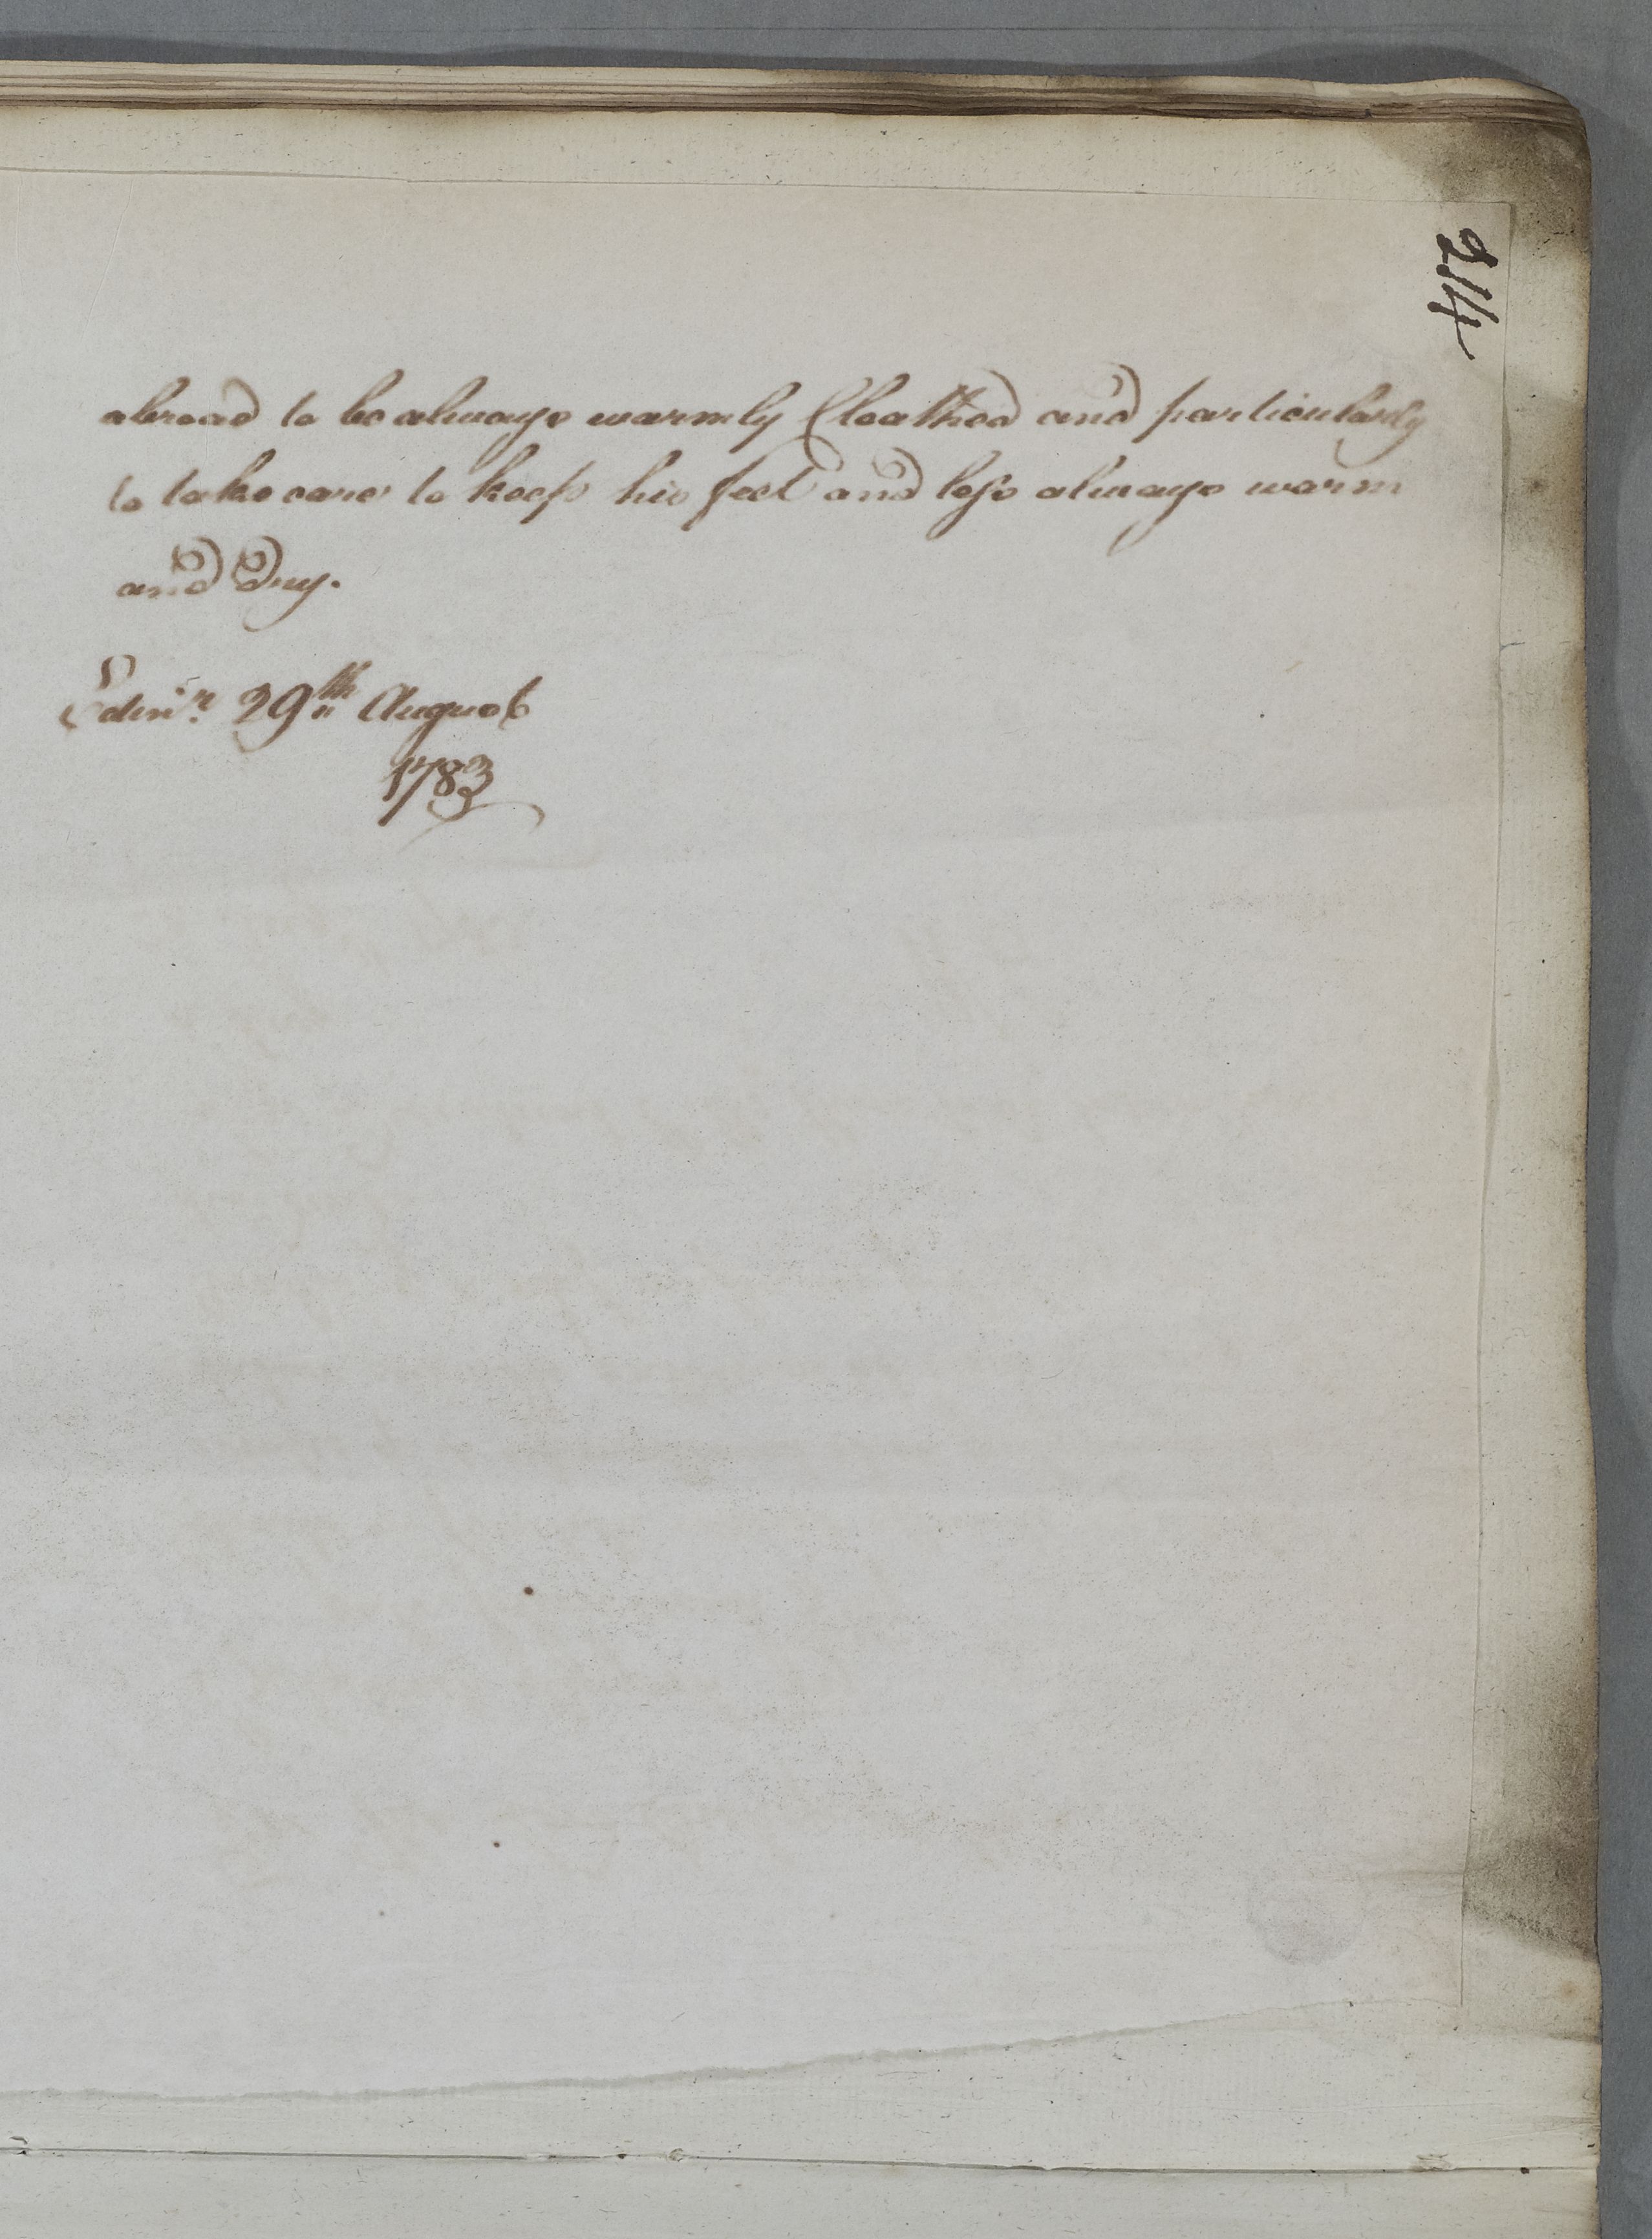 214
abroad to be always warmly Cloathed and particularly
to take care to keep his feet and legs always warm
and dry.
Edinr. 29th August
1783